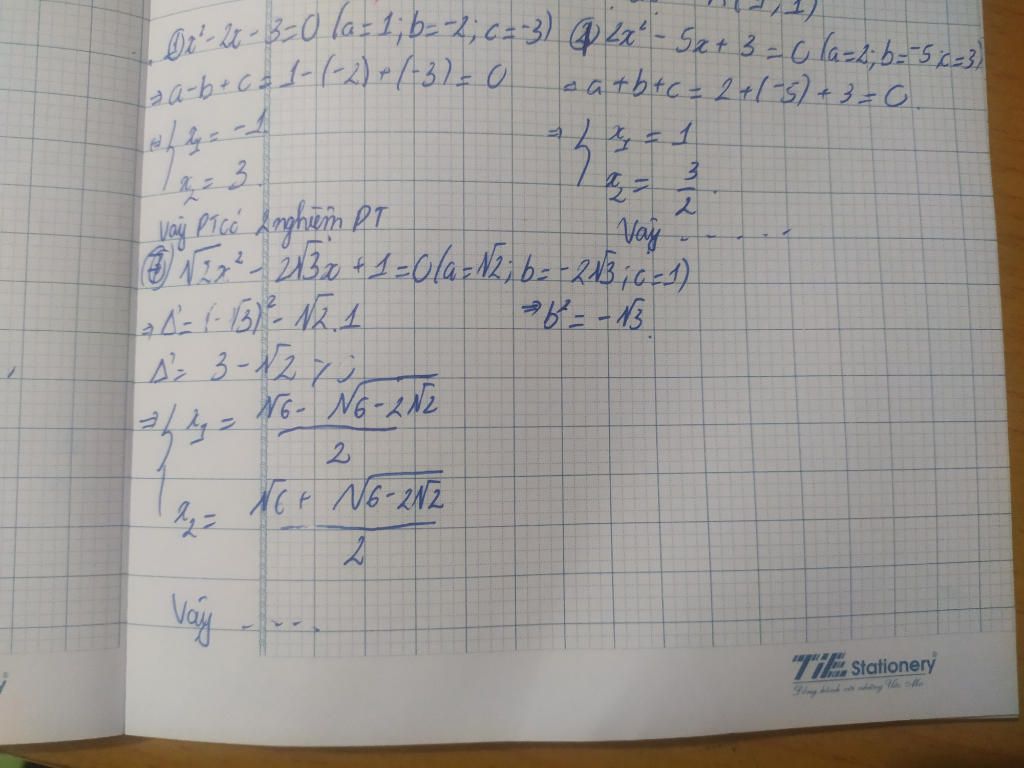 ① x² - 2x - 3 = 0 (a = 1; b = -2; c = -3)
⇒ a - b + c = 1 - (-2) + (-3) = 0
⇒ { x₁ = -1
x₂ = 3
Vậy PT có 2 nghiệm PT
2x² - 5x + 3 = 0 (a = 2; b = -5; c = 3)
⇒ a + b + c = 2 + (-5) + 3 = 0
⇒ { x₁ = 1
x₂ = 3/2.
Vậy .....
√2x² - 2√3x + 1 = 0 (a = √2; b = -2√3; c = 1)
⇒ Δ' = (-√3)² - √2.1
⇒ b² = -√3.
Δ' = 3 - √2 > 0
⇒ { x₁ = (√6 - √(6 - 2√2))/2
x₂ = (√6 + √(6 - 2√2))/2
Vậy ....
TiE Stationery
Đồng hành với những Ước Mơ